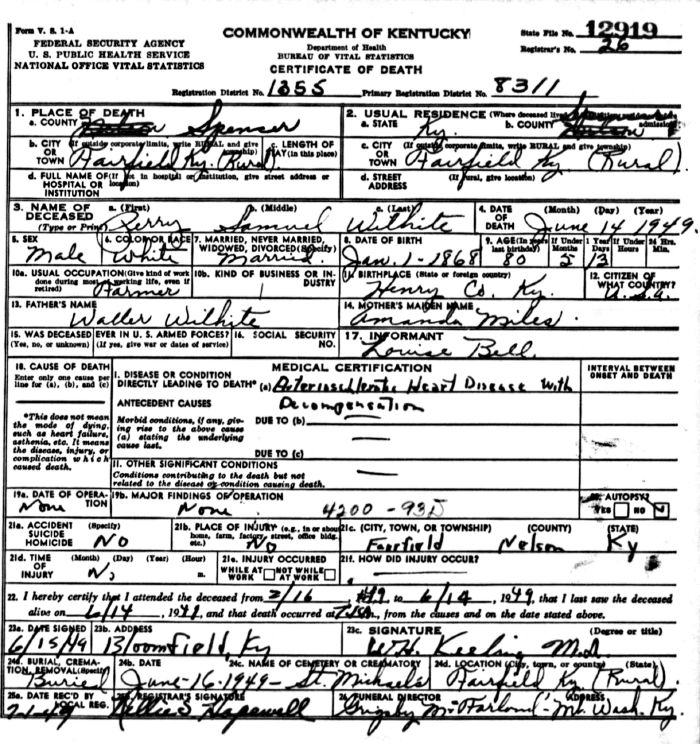 Form V. S. 1-A
FEDERAL SECURITY AGENCY
U. S. PUBLIC HEALTH SERVICE
NATIONAL OFFICE VITAL STATISTICS
COMMONWEALTH OF KENTUCKY
Department of Health
BUREAU OF VITAL STATISTICS
CERTIFICATE OF DEATH
State File No. 12919
Registrar's No. 26
Registration District No. 1355 Primary Registration District No. 8311
1. PLACE OF DEATH
a. COUNTY Nelson Spencer
2. USUAL RESIDENCE (Where deceased lived
a. STATE Ky. b. COUNTY Nelson
b. CITY (If outside corporate limits, write RURAL and give township) OR TOWN Fairfield Ky. (Rural)
c. LENGTH OF STAY (in this place)
c. CITY (If outside corporate limits, write RURAL and give township) OR TOWN Fairfield Ky (Rural).
d. FULL NAME OF (If not in hospital or institution, give street address or location) HOSPITAL OR INSTITUTION
d. STREET ADDRESS (If rural, give location)
3. NAME OF DECEASED (Type or Print) a. (First) Perry b. (Middle) Samuel c. (Last) Wilhite
4. DATE OF DEATH (Month) (Day) (Year) June 14 1949.
5. SEX Male
6. COLOR OR RACE White
7. MARRIED, NEVER MARRIED, WIDOWED, DIVORCED (Specify) Married
8. DATE OF BIRTH Jan. 1-1868
9. AGE (In years last birthday) 80 If Under 1 Year Months 5 Days 13 If Under 24 Hrs. Hours Min.
10a. USUAL OCCUPATION (Give kind of work done during most of working life, even if retired) Farmer
10b. KIND OF BUSINESS OR INDUSTRY
11. BIRTHPLACE (State or foreign country) Henry Co. Ky.
12. CITIZEN OF WHAT COUNTRY? U.S.A.
13. FATHER'S NAME Waller Wilhite
14. MOTHER'S MAIDEN NAME Amanda Miles.
15. WAS DECEASED EVER IN U. S. ARMED FORCES? (Yes, no, or unknown) (If yes, give war or dates of service)
16. SOCIAL SECURITY NO.
17. INFORMANT Louise Bell.
18. CAUSE OF DEATH
Enter only one cause per line for (a), (b), and (c)
*This does not mean the mode of dying, such as heart failure, asthenia, etc. It means the disease, injury, or complication which caused death.
MEDICAL CERTIFICATION
INTERVAL BETWEEN ONSET AND DEATH
I. DISEASE OR CONDITION DIRECTLY LEADING TO DEATH* (a) Arteriosclerotic Heart Disease with
Decompensation
ANTECEDENT CAUSES
Morbid conditions, if any, giving rise to the above cause (a) stating the underlying cause last.
DUE TO (b)
DUE TO (c)
II. OTHER SIGNIFICANT CONDITIONS
Conditions contributing to the death but not related to the disease or condition causing death.
19a. DATE OF OPERATION None
19b. MAJOR FINDINGS OF OPERATION None. 4200 - 93D
20. AUTOPSY? YES NO
21a. ACCIDENT SUICIDE HOMICIDE (Specify) NO
21b. PLACE OF INJURY (e.g., in or about home, farm, factory, street, office bldg. etc.) No
21c. (CITY, TOWN, OR TOWNSHIP) (COUNTY) (STATE)
Fairfield Nelson Ky
21d. TIME OF INJURY (Month) (Day) (Year) (Hour) m. No
21e. INJURY OCCURRED WHILE AT WORK NOT WHILE AT WORK
21f. HOW DID INJURY OCCUR?
22. I hereby certify that I attended the deceased from 2/16 1949 to 6/14, 1949, that I last saw the deceased
alive on 6/14, 1949, and that death occurred at m., from the causes and on the date stated above.
23a. DATE SIGNED 6/15/49
23b. ADDRESS Bloomfield, Ky
23c. SIGNATURE (Degree or title) W.H. Keeling M.D.
24a. BURIAL, CREMATION, REMOVAL (Specify) Burial
24b. DATE June-16-1949
24c. NAME OF CEMETERY OR CREMATORY St. Michaels
24d. LOCATION (City, town, or county) (State) Fairfield Ky (Rural).
25a. DATE REC'D BY LOCAL REG.
25b. REGISTRAR'S SIGNATURE Nellie S Hopewell
26. FUNERAL DIRECTOR ADDRESS
Grigsby McFarland - Mt. Wash. Ky.